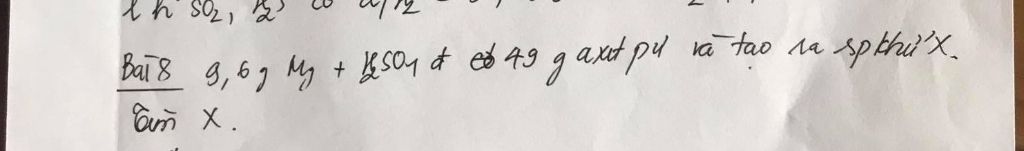 SO2, H2S có d/H2
Bài 8 9,6 g Mg + H2SO4 đ có 49 g axit pứ và tạo ra sp khử X.
Tìm X.